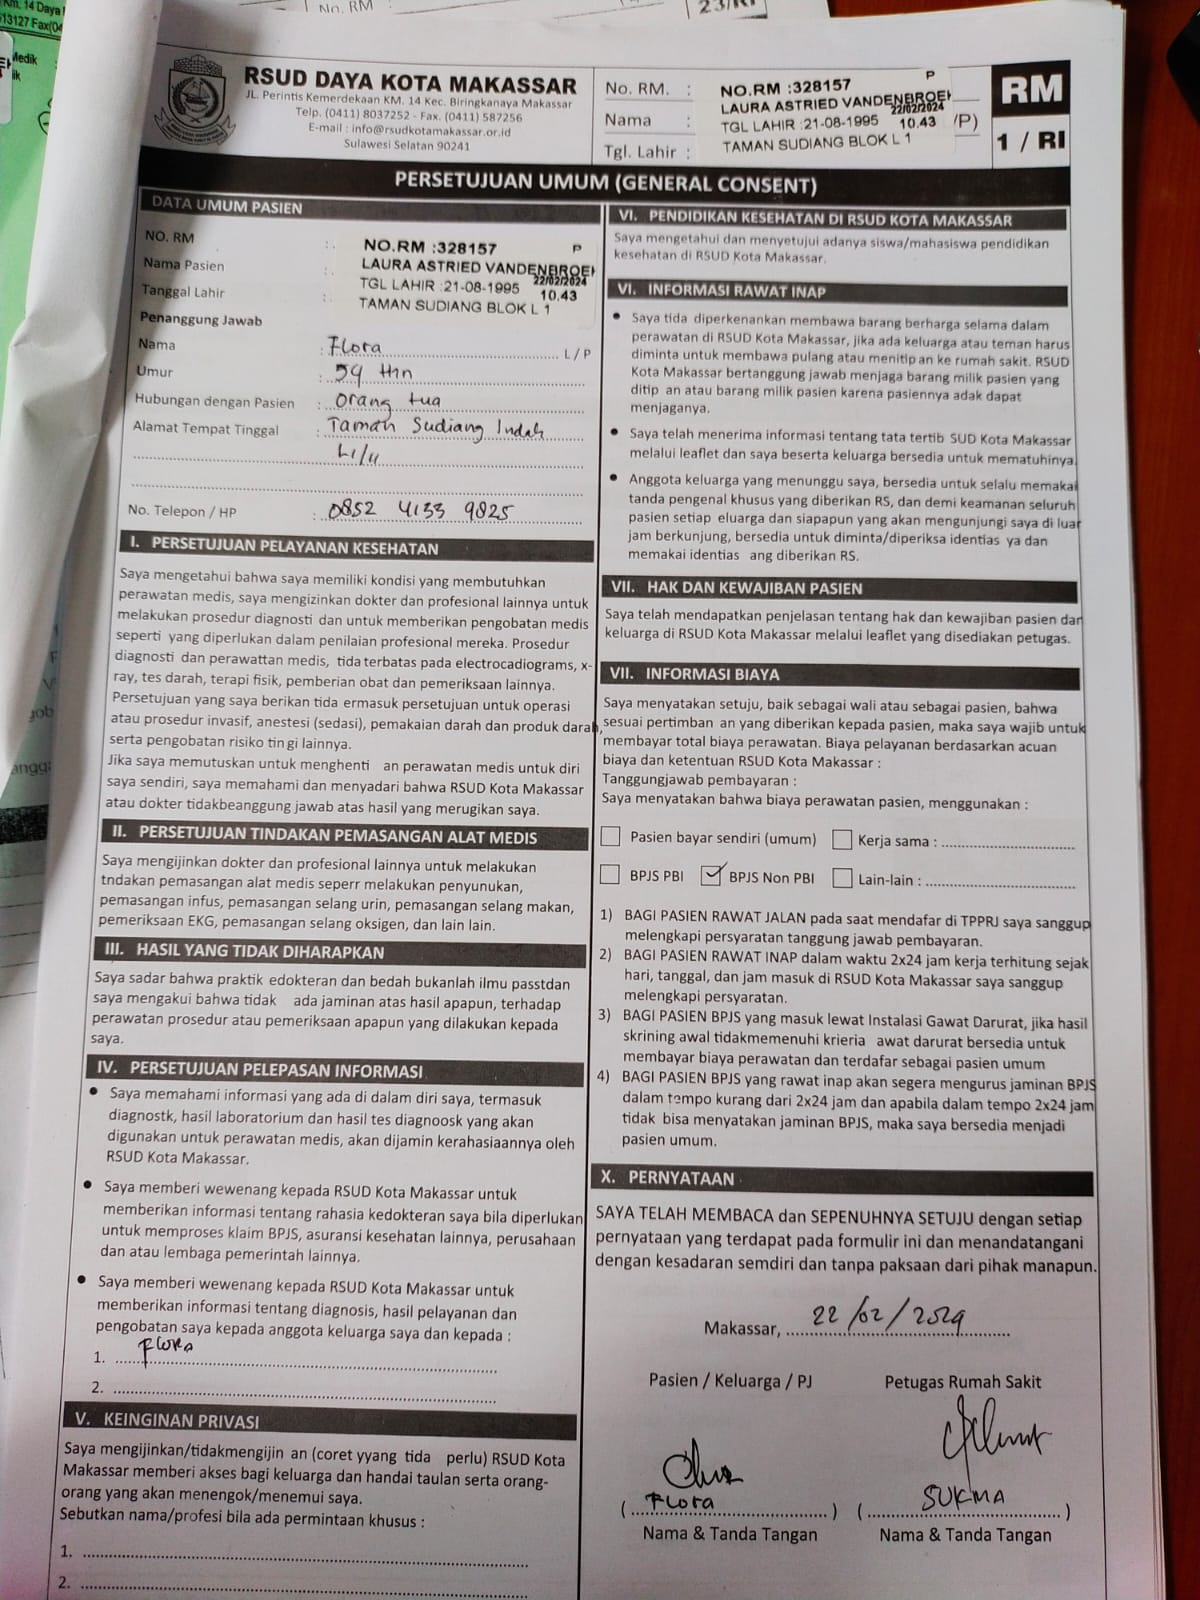 Km. 14 Daya
13127 Fax(04
Medik
ik
No. RM
23/RI
RSUD DAYA KOTA MAKASSAR
JL. Perintis Kemerdekaan KM. 14 Kec. Biringkanaya Makassar
Telp. (0411) 8037252 - Fax. (0411) 587256
E-mail : info@rsudkotamakassar.or.id
Sulawesi Selatan 90241
No. RM. :
Nama :
Tgl. Lahir :
P
NO.RM :328157
LAURA ASTRIED VANDENBROEK
22/02/2024
TGL LAHIR :21-08-1995 10.43
TAMAN SUDIANG BLOK L 1
/P)
RM
1 / RI
PERSETUJUAN UMUM (GENERAL CONSENT)
DATA UMUM PASIEN
NO. RM :
Nama Pasien :
Tanggal Lahir :
NO.RM :328157 P
LAURA ASTRIED VANDENBROEK
TGL LAHIR :21-08-1995 22/02/2024
10.43
TAMAN SUDIANG BLOK L 1
Penanggung Jawab
Nama : Flora L / P
Umur : 59 thn
Hubungan dengan Pasien : Orang tua
Alamat Tempat Tinggal : Taman Sudiang Indah
L1/11
No. Telepon / HP : 0852 4133 9825
I. PERSETUJUAN PELAYANAN KESEHATAN
Saya mengetahui bahwa saya memiliki kondisi yang membutuhkan
perawatan medis, saya mengizinkan dokter dan profesional lainnya untuk
melakukan prosedur diagnosti dan untuk memberikan pengobatan medis
seperti yang diperlukan dalam penilaian profesional mereka. Prosedur
diagnosti dan perawattan medis, tida terbatas pada electrocadiograms, x-
ray, tes darah, terapi fisik, pemberian obat dan pemeriksaan lainnya.
Persetujuan yang saya berikan tida ermasuk persetujuan untuk operasi
atau prosedur invasif, anestesi (sedasi), pemakaian darah dan produk darah,
serta pengobatan risiko tin gi lainnya.
Jika saya memutuskan untuk menghenti an perawatan medis untuk diri
saya sendiri, saya memahami dan menyadari bahwa RSUD Kota Makassar
atau dokter tidakbeanggung jawab atas hasil yang merugikan saya.
II. PERSETUJUAN TINDAKAN PEMASANGAN ALAT MEDIS
Saya mengijinkan dokter dan profesional lainnya untuk melakukan
tndakan pemasangan alat medis seperr melakukan penyunukan,
pemasangan infus, pemasangan selang urin, pemasangan selang makan,
pemeriksaan EKG, pemasangan selang oksigen, dan lain lain.
III. HASIL YANG TIDAK DIHARAPKAN
Saya sadar bahwa praktik edokteran dan bedah bukanlah ilmu passtdan
saya mengakui bahwa tidak ada jaminan atas hasil apapun, terhadap
perawatan prosedur atau pemeriksaan apapun yang dilakukan kepada
saya.
IV. PERSETUJUAN PELEPASAN INFORMASI
• Saya memahami informasi yang ada di dalam diri saya, termasuk
diagnostk, hasil laboratorium dan hasil tes diagnoosk yang akan
digunakan untuk perawatan medis, akan dijamin kerahasiaannya oleh
RSUD Kota Makassar.
• Saya memberi wewenang kepada RSUD Kota Makassar untuk
memberikan informasi tentang rahasia kedokteran saya bila diperlukan
untuk memproses klaim BPJS, asuransi kesehatan lainnya, perusahaan
dan atau lembaga pemerintah lainnya.
• Saya memberi wewenang kepada RSUD Kota Makassar untuk
memberikan informasi tentang diagnosis, hasil pelayanan dan
pengobatan saya kepada anggota keluarga saya dan kepada :
1. Flora
2.
V. KEINGINAN PRIVASI
Saya mengijinkan/tidakmengijin an (coret yyang tida perlu) RSUD Kota
Makassar memberi akses bagi keluarga dan handai taulan serta orang-
orang yang akan menengok/menemui saya.
Sebutkan nama/profesi bila ada permintaan khusus :
1.
2.
VI. PENDIDIKAN KESEHATAN DI RSUD KOTA MAKASSAR
Saya mengetahui dan menyetujui adanya siswa/mahasiswa pendidikan
kesehatan di RSUD Kota Makassar.
VI. INFORMASI RAWAT INAP
• Saya tida diperkenankan membawa barang berharga selama dalam
perawatan di RSUD Kota Makassar, jika ada keluarga atau teman harus
diminta untuk membawa pulang atau menitip an ke rumah sakit. RSUD
Kota Makassar bertanggung jawab menjaga barang milik pasien yang
ditip an atau barang milik pasien karena pasiennya adak dapat
menjaganya.
• Saya telah menerima informasi tentang tata tertib SUD Kota Makassar
melalui leaflet dan saya beserta keluarga bersedia untuk mematuhinya.
• Anggota keluarga yang menunggu saya, bersedia untuk selalu memakai
tanda pengenal khusus yang diberikan RS, dan demi keamanan seluruh
pasien setiap eluarga dan siapapun yang akan mengunjungi saya di luar
jam berkunjung, bersedia untuk diminta/diperiksa identias ya dan
memakai identias ang diberikan RS.
VII. HAK DAN KEWAJIBAN PASIEN
Saya telah mendapatkan penjelasan tentang hak dan kewajiban pasien dan
keluarga di RSUD Kota Makassar melalui leaflet yang disediakan petugas.
VII. INFORMASI BIAYA
Saya menyatakan setuju, baik sebagai wali atau sebagai pasien, bahwa
sesuai pertimban an yang diberikan kepada pasien, maka saya wajib untuk
membayar total biaya perawatan. Biaya pelayanan berdasarkan acuan
biaya dan ketentuan RSUD Kota Makassar :
Tanggungjawab pembayaran :
Saya menyatakan bahwa biaya perawatan pasien, menggunakan :
Pasien bayar sendiri (umum) Kerja sama :
BPJS PBI ✓ BPJS Non PBI Lain-lain :
1) BAGI PASIEN RAWAT JALAN pada saat mendafar di TPPRJ saya sanggup
melengkapi persyaratan tanggung jawab pembayaran.
2) BAGI PASIEN RAWAT INAP dalam waktu 2x24 jam kerja terhitung sejak
hari, tanggal, dan jam masuk di RSUD Kota Makassar saya sanggup
melengkapi persyaratan.
3) BAGI PASIEN BPJS yang masuk lewat Instalasi Gawat Darurat, jika hasil
skrining awal tidakmemenuhi krieria awat darurat bersedia untuk
membayar biaya perawatan dan terdafar sebagai pasien umum
4) BAGI PASIEN BPJS yang rawat inap akan segera mengurus jaminan BPJS
dalam tempo kurang dari 2x24 jam dan apabila dalam tempo 2x24 jam
tidak bisa menyatakan jaminan BPJS, maka saya bersedia menjadi
pasien umum.
X. PERNYATAAN
SAYA TELAH MEMBACA dan SEPENUHNYA SETUJU dengan setiap
pernyataan yang terdapat pada formulir ini dan menandatangani
dengan kesadaran semdiri dan tanpa paksaan dari pihak manapun.
Makassar, 22/02/2024
Pasien / Keluarga / PJ Petugas Rumah Sakit
( Flora ) ( SUKMA )
Nama & Tanda Tangan Nama & Tanda Tangan